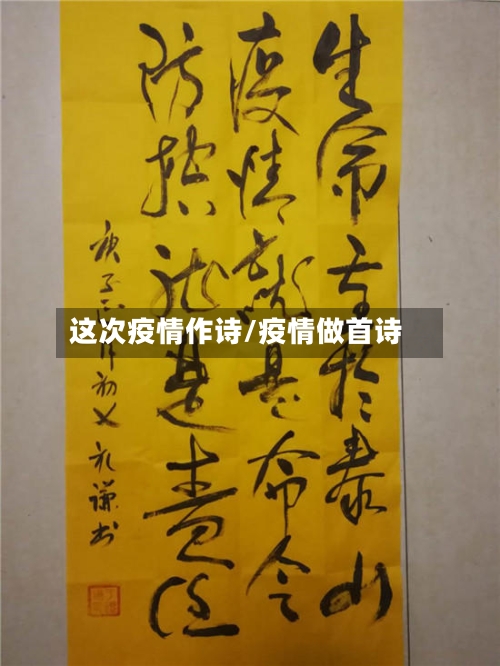 生命重于泰山
疫情就是命令
防控就是责任
庚子 初 谦书
这次疫情作诗/疫情做首诗